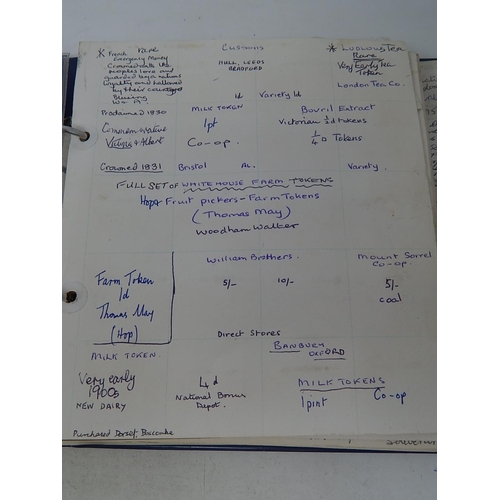 * French Rare
Emergency Money
Crowned with the
peoples love and
guarded by a nations
loyalty and hallowed
by their
Blessing
Customs
HULL, LEEDS
BRADFORD
* LUDLOWS TEA
Rare
Very Early Tea
Token
London Tea Co.
1d Variety 1d
Proclaimed 1830
MILK TOKEN
Bovril Extract
1pt
Victorian ½d tokens
Victoria & Albert
Co-op
¼d Tokens
Crowned 1831 Bristol AL. Variety
FULL SET OF WHITEHOUSE FARM TOKENS
Hops Fruit pickers - Farm Tokens
(Thomas May)
Woodham Walter
William Brothers.
Mount Sorrel
Co-op.
5/- 10/- 5/-
coal
Farm Token
1d
Thomas May
(Hop)
Direct Stores
MILK TOKEN.
BANBURY
OXFORD
Very early
1900s
NEW DAIRY
4d
National Bonus
Depot.
MILK TOKENS
1 pint Co-op
Purchased Dorset, Boscombe